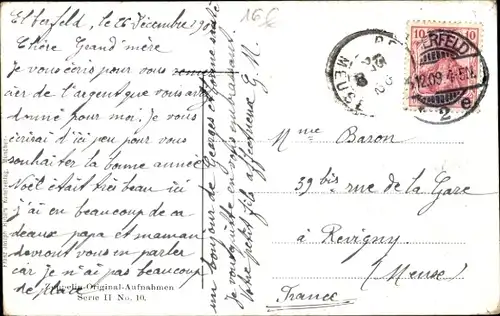 Elberfeld, le 26 Décembre 190
Chère Grand'mère
Je vous écris pour vous remer
cier de l'argent que vous avez
donné pour moi. Je vous
écrirai d'ici peu pour vous
souhaiter la bonne année
Noël était très beau ici
j'ai eu beaucoup de ca
deaux papa et maman
devront vous en parler
car je n'ai pas beaucoup
de place
un bonjour de Georges et
Je vous quitte en vous embrassant
Votre petit fils affectueux G. M.
16€
10 10
ERFELD
12.09.4-5N.
2 e
MEUSE
Mme Baron
39 bis rue de la Gare
à Revigny
(Meuse)
France
Original-Aufnahmen
Serie II No. 10.